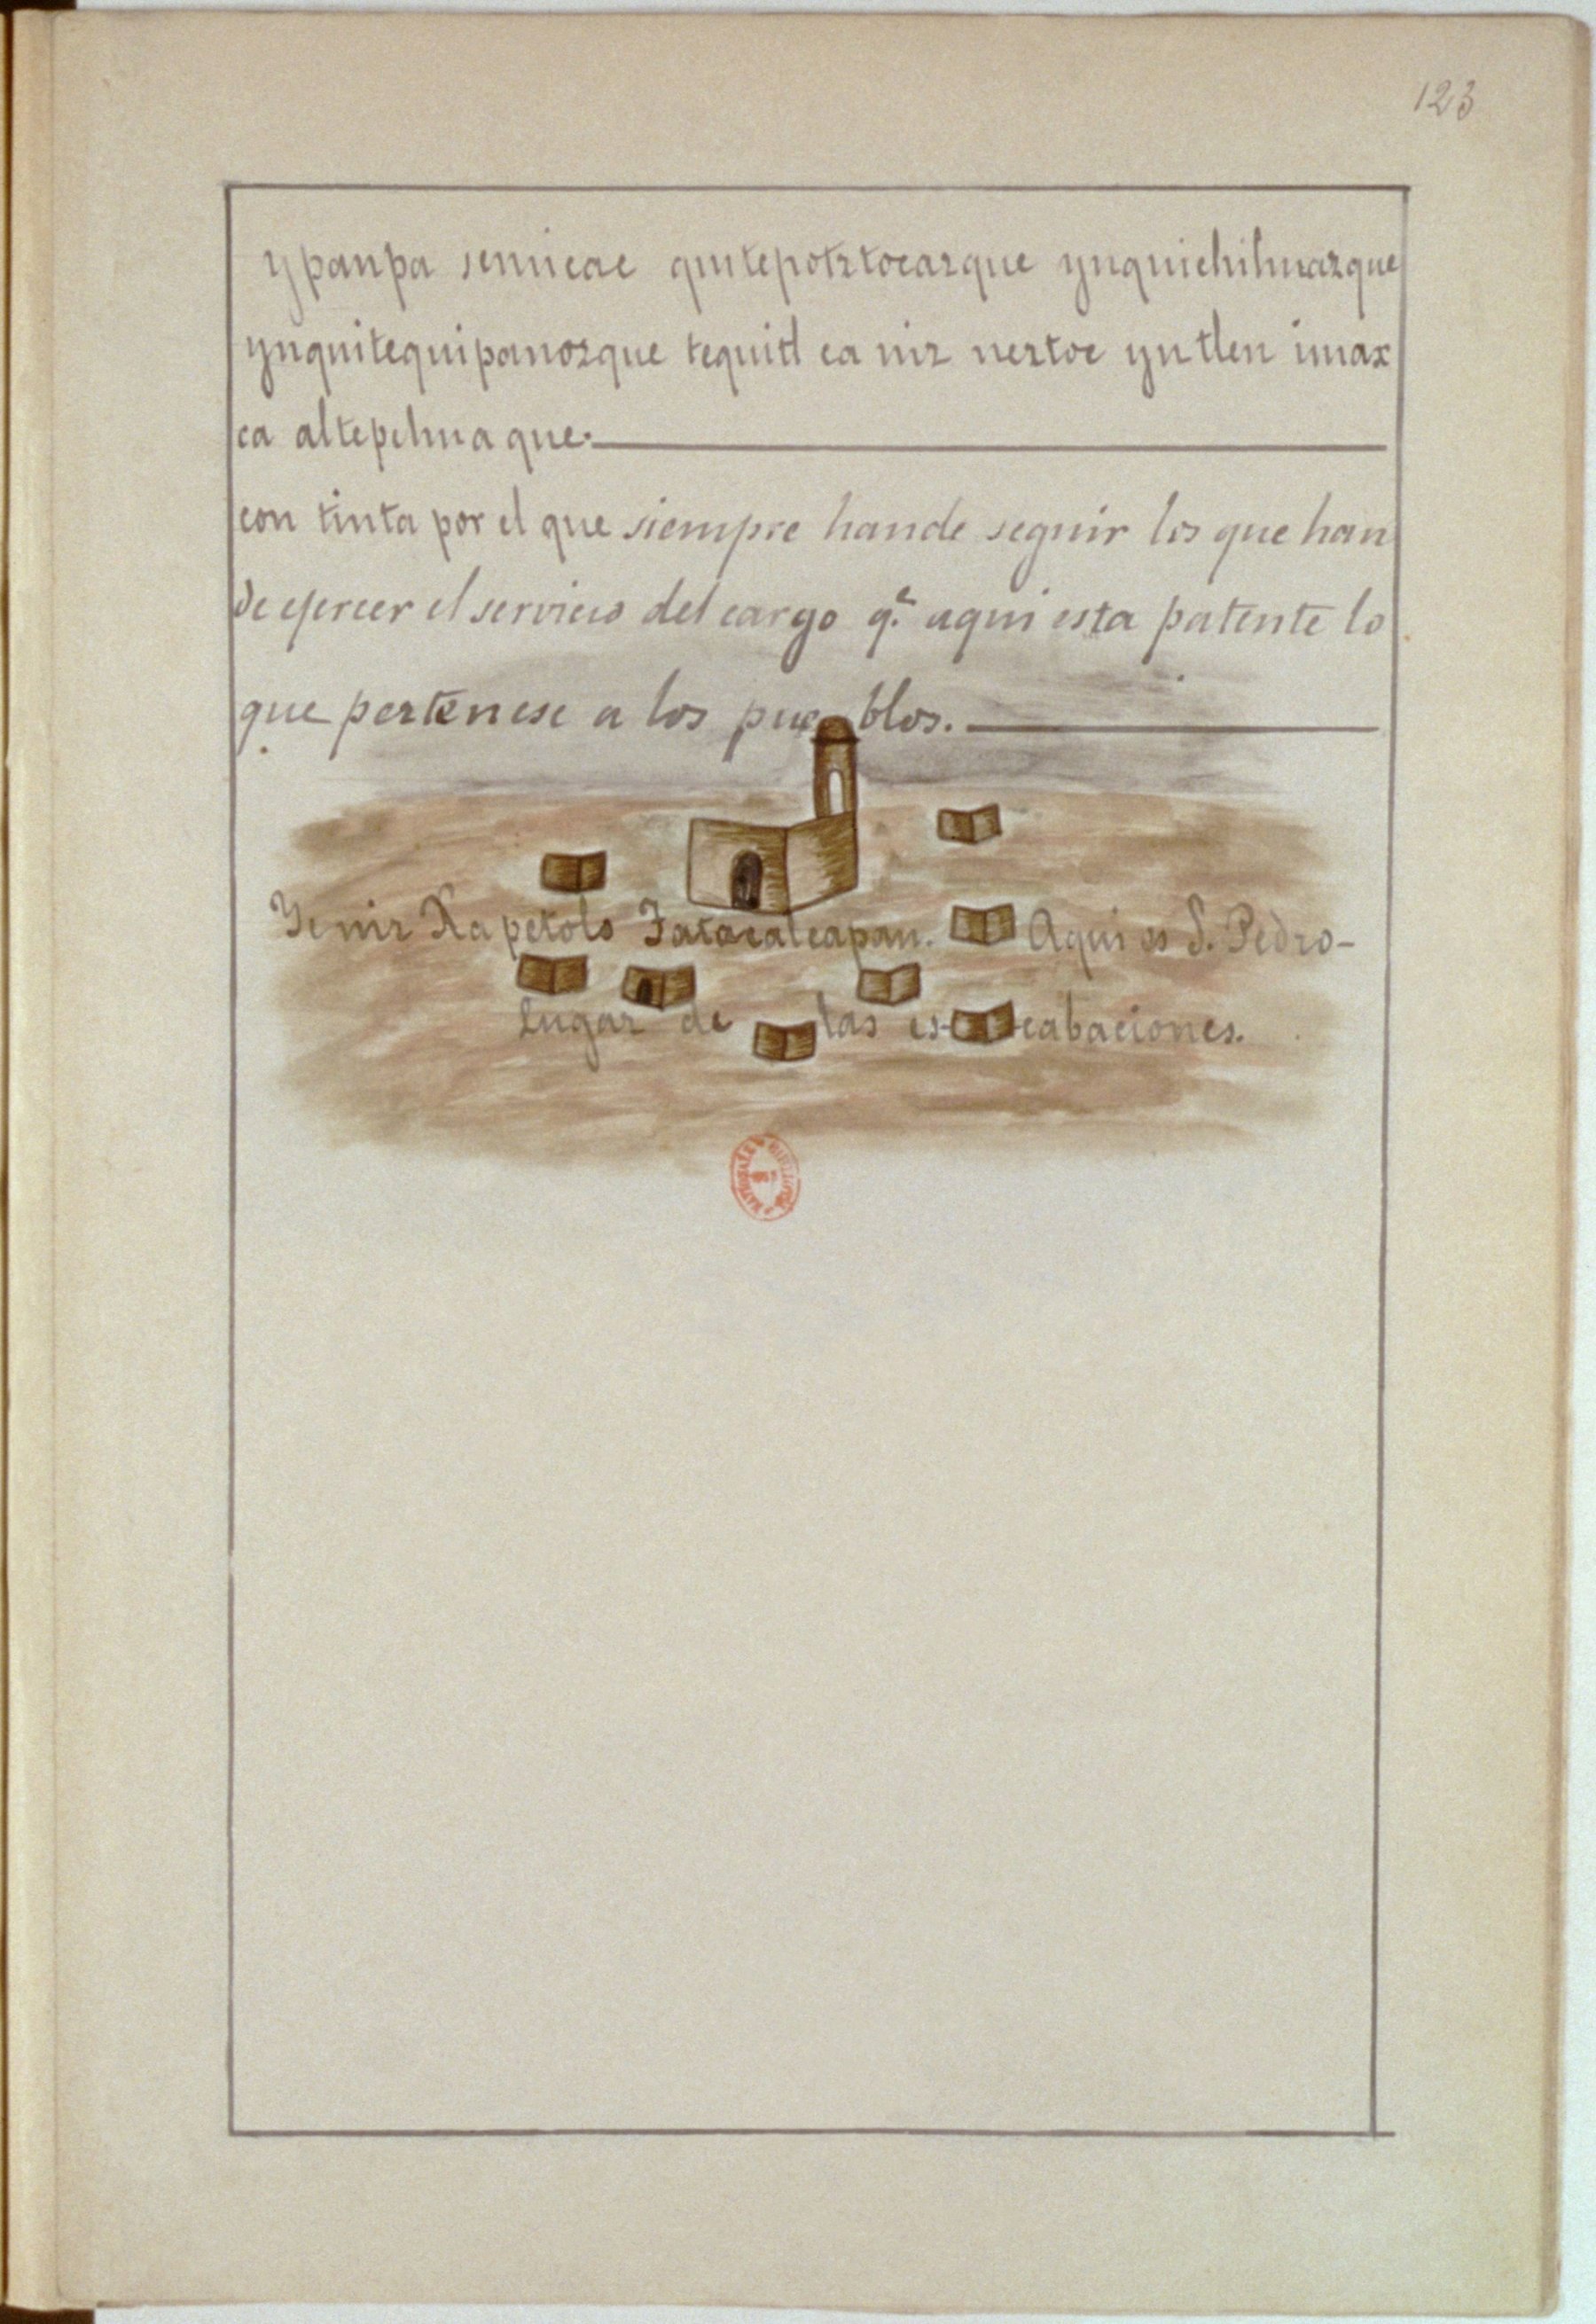 123
ypanpa semicac quitepotztocazque ynquichihuazque
ynquitequipanozque tequitl ca niz neztoc yntlen imax
ca altepehuaque.
con tinta por el que siempre hande seguir los que han
de ejercer el servicio del cargo q.e aqui esta patente lo
que pertenese a los pueblos.
Ye niz Xapetolo Tatacalcapan. Aqui es S. Pedro-
lugar de las es-cabaciones.